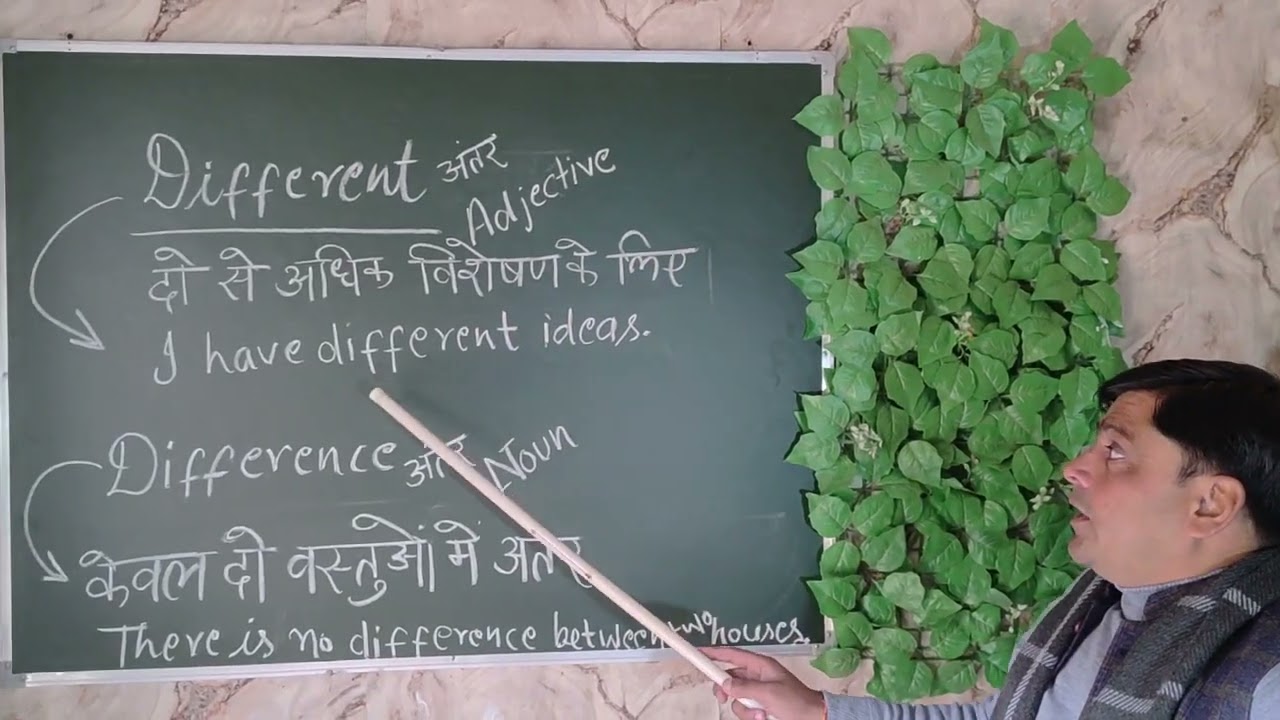 Different अंतर
Adjective
दो से अधिक विशेषण के लिए
I have different ideas.
Difference अंतर Noun
केवल दो वस्तुओं में अतंर
There is no difference between two houses.